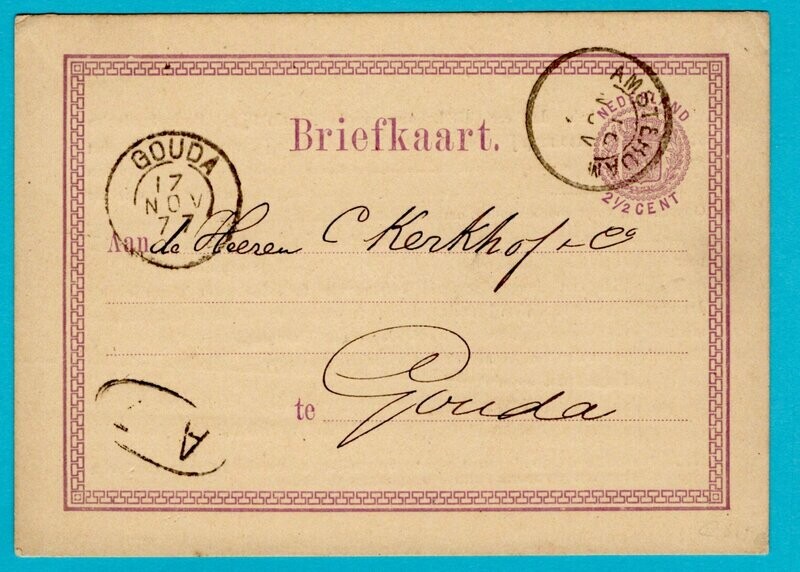 Briefkaart.
NEDERLAND
2½ CENT
AMSTERDAM
NOV
GOUDA
17
NOV
77
Aan de Heeren C Kerkhof & Co
te Gouda
A